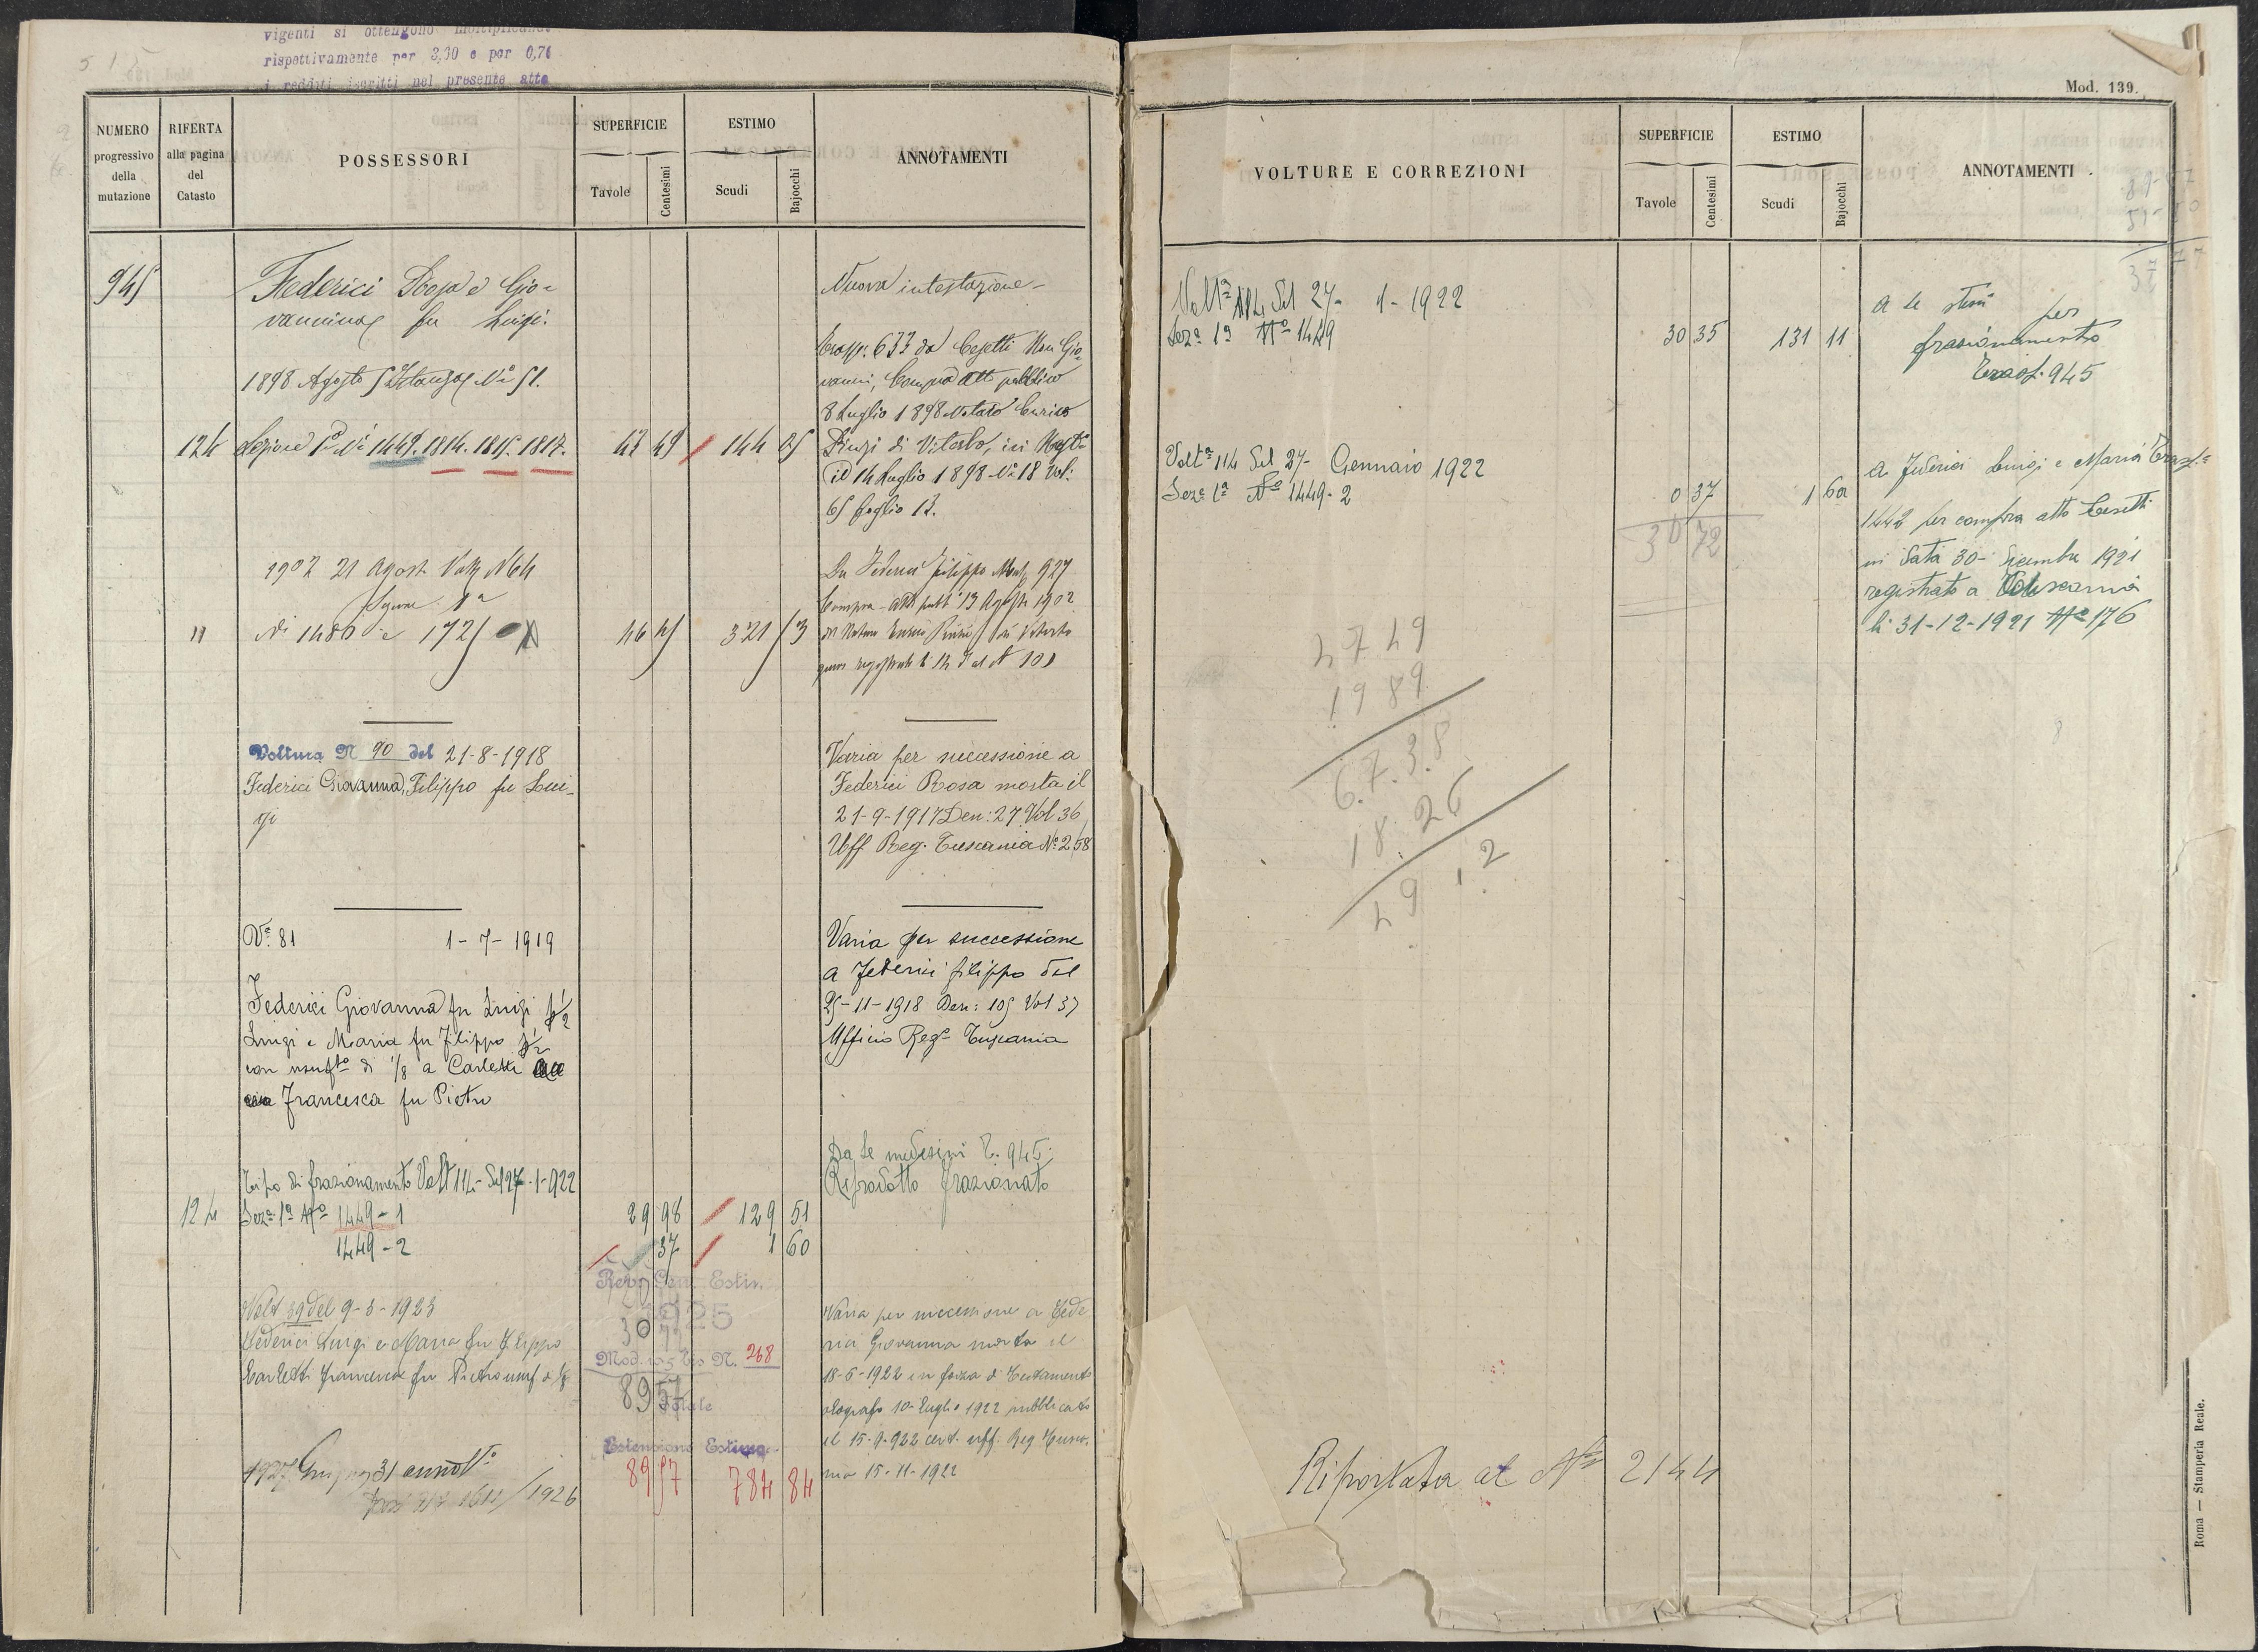 vigenti si ottengono moltiplicando
rispettivamente per 3,30 e per 0,76
i redditi iscritti nel presente atto
NUMERO
progressivo
della
mutazione
RIFERTA
alla pagina
del
Catasto
POSSESSORI
SUPERFICIE
Tavole
Centesimi
ESTIMO
Scudi
Bajocchi
ANNOTAMENTI
945
Federici Rosa e Gio=
vannina fu Luigi.
1898 Agosto 5 Istanza N° 51.
124 Sezione 1ª Ni 1449. 1814. 1815. 1817. 42 49 144 05
Nuova intestazione
Trasp. 633 da Cesetti Gio=
vanni, Compra atto pubblico
8 Luglio 1898 Notaro Enrico
Pinzi di Viterbo, ivi Regto
il 14 Luglio 1898 N° 18 Vol.
65 foglio 12.
1902 21 Agost Vol N 64
Sezione 1ª
" Ni 1480 e 1725 46 45 321 53
Da Federici Filippo 927
Compra atto pubb 13 Agosto 1902
Notaro Enrico Pinzi di Viterbo
Voltura N 90 del 21-8-1918
Federici Giovanna, Filippo fu Lui-
gi
Varia per successione a
Federici Rosa morta il
21-9-1917 Den: 27 Vol 36
Uff. Reg. Tuscania N° 258
Va 81 1-7-1919
Federici Giovanna fu Luigi 1/2
Luigi e Maria fu Filippo 1/2
con usuftº di 1/8 a Carletti
Francesca fu Pietro
Varia per successione
a Federici Filippo del
25-11-1918 Den: 105 Vol 37
Ufficio Regº Tuscania
Tipo di frazionamento Volt 114 del 27-1-922
124 Sezª 1ª Nº 1449-1 29 98 129 51
1449-2 37 1 60
Da le medesimi T. 945:
Riprodotto frazionato
Rev. Gen. Estim.
1925
30 72
Mod. 105 bis N. 268
89 57
Totale
Estensione Estimo
89 57 784 84
Volt 39 del 9-3-1923
Federici Luigi e Maria fu Filippo
Carletti Francesca fu Pietro usuf 1/8
Varia per successione a Fede
rici Giovanna morta il
18-6-1922 in forza di Testamento
olografo 10 Luglio 1922 pubblicato
il 15-9-922 cert. uff. Reg Tusca.
nia 15-11-1922
1926
Mod. 139.
VOLTURE E CORREZIONI
SUPERFICIE
Tavole
Centesimi
ESTIMO
Scudi
Bajocchi
ANNOTAMENTI
Voltª 114 del 27- 1-1922
Sezª 1ª Nº 1449 30 35 131 11
a le stessi per
frazionamento
Trasp. 945
Voltª 114 del 27- Gennaio 1922
Sezª 1ª Nº 1449-2 0 37 1 60
30 72
A Federici Luigi e Maria Trasp.
1442 per compra atto Cesetti
in data 30 Dicembre 1921
registrato a Tuscania
li 31-12-1921 Nº 176
4749
1989
6.7.3.8
18.26
49 12
Riportata al Nº 2144
Roma — Stamperia Reale.